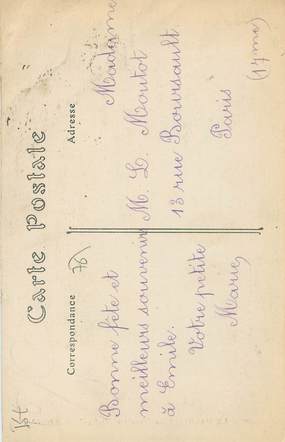 Carte Postale
Correspondance
Adresse
76
Bonne fête et
meilleurs souvenir
à Emile.
Votre petite
Marie,
Madame
M. L. Moutot
13 rue Boursault
Paris
(17me)